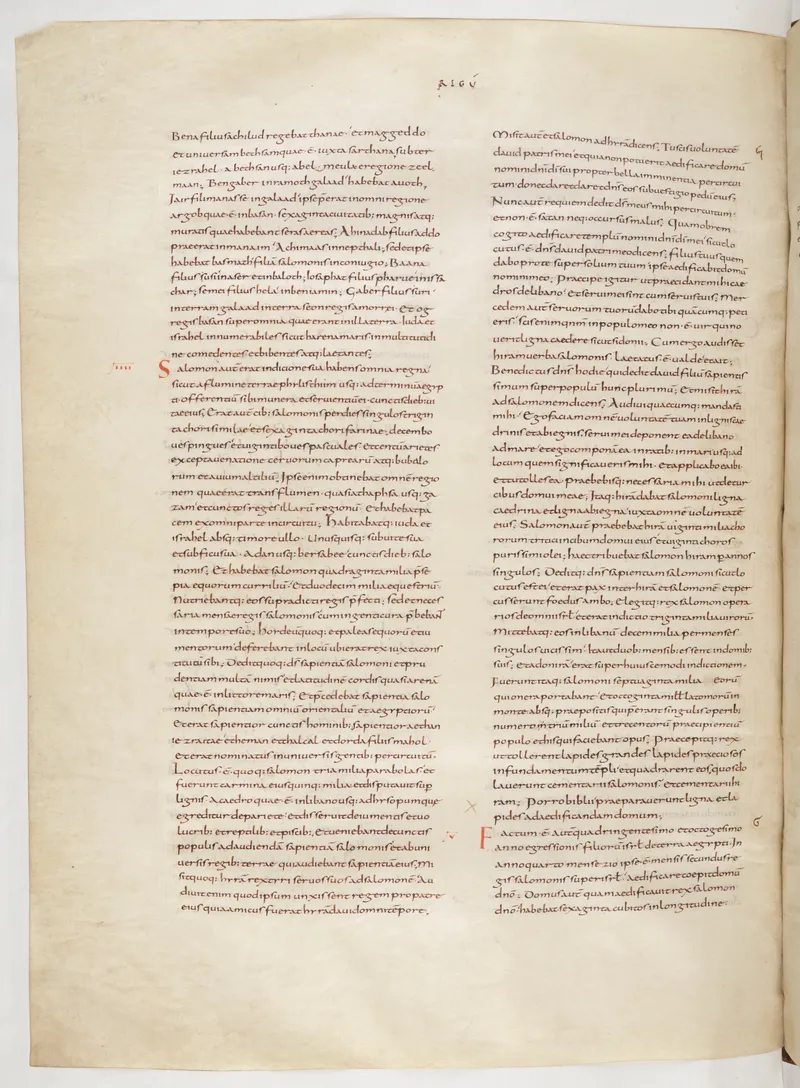 REGŪ
Bena filiuſ achilud regebat thanac · et mageddo
et uniuerſam bethſan quae · ē · iuxta ſarthana ſubter
iezrahel · a bethſan uſq: abel · meula e regione zecl
maan; Bengaber in ramoth galaad habebat auoth,
Jair filii manaſſe in galaad ipſe p̄erat in omni regione
argob quae · ē · in baſan · ſexaginta ciuitatib; magniſ atq:
muratiſ quae habebant ſeraſ aereaſ; Ahinadab filiuſ addo
praeerat in manaim · Achimaaſ in nepthali; ſed et ipſe
habebat baſmath filiā ſalomoniſ in coniugio; Baana
filiuſ huſi in aſer et in baloth; Ioſaphat filiuſ pharue in iſſa
char; ſemei filiuſ hela in beniamin; Gaber filiuſ uri
in terra galaad in terra ſeon regiſ amorrei · et og
regiſ baſan ſuper omnia quae erant in illa terra · Iuda et
iſrahel innumerabileſ ſicut harena mariſ in multitudi
ne · comedenteſ et bibenteſ atq: laetanteſ;
Salomon autē erat in dicione ſua habenſ omnia regna
ſicut a flumine terrae phyliſthiim uſq: ad terminū aegyp
ti offerentiū ſibi munera et ſeruientiū ei · cunctiſ dieb: ui
tae eiuſ; Erat autē cib: ſalomoniſ per dieſ ſinguloſ trigin
ta chori ſimilae et ſexaginta chori farinae; decem bo
ueſ pingueſ et uiginti boueſ paſcualeſ et centū arieteſ
excepta uenatione ceruorum caprearū atq: bubalo
rum et auiū altiliū; Ipſe enim obtinebat omnē regio
nem quae erat tranſ flumen · quaſi a thaphſa uſq: ga
zam et cunctoſ regeſ illarū regionū · Et habebat pa
cem ex omni parte in circuitu; Habitabatq: iuda et
iſrahel abſq: timore ullo · Unuſquiſq: ſub uite ſua
et ſub ficu ſua · a dan uſq: berſabee cunctiſ dieb: ſalo
moniſ; Et habebat ſalomon quadraginta milia p̄ſe
pia equorum curriliū · et duodecim milia equeſtriū
Nutriebantq: eoſ ſupradicti regiſ p̄fecti; ſed et neceſ
ſaria menſae regiſ ſalomoniſ cum ingenti cura p̄bebant
in tempore ſuo; Hordeū quoq: et paleaſ equorū et iu
mentorum deferebant in locū ubi erat rex iuxta conſ
titutū ſibi; Dedit quoq: dſ ſapientiā ſalomoni et pru
dentiam multā nimiſ et latitudinē cordiſ quaſi arenā
quae · ē · in litore mariſ; Et p̄cedebat ſapientia ſalo
moniſ ſapientiam omniū orientaliū et aegyptiorū
Et erat ſapientior cunctiſ hominib; ſapientior aethan
iezraite et heman et chalcal et dorda filiiſ mahol ·
et erat nominatuſ in uniuerſiſ gentib: per circuitū ·
Locutuſ · ē · quoq: ſalomon tria milia parabolaſ · et
fuerunt carmina eiuſ quinq: milia et diſputauit ſup
ligniſ · A caedro quae · ē · in libano uſq: ad hyſopum quae
egreditur de pariete · et diſſeruit de iumentiſ et uo
lucrib: et reptilib: et piſcib; Et ueniebant de cunctiſ
populiſ ad audiendā ſapientiā ſalomoniſ et ab uni
uerſiſ regib: terrae qui audiebant ſapientiā eiuſ; Mi
ſit quoq: hyrā rex tyri ſeruoſ ſuoſ ad ſalomonē · Au
diuit enim quod ipſum unxiſſent regem pro patre
eiuſ quia amicuſ fuerat hyrā dauid omni tēpore;
Miſit autē et ſalomon ad hyrā dicenſ; Tu ſciſ uoluntatē
dauid patriſ mei et quia non potuerit aedificare domū
nomini dn̄i dī ſui propter bella imminentia per circui
tum · donec daret dn̄ſ eoſ ſub ueſtigio pedū eiuſ;
Nunc autē requiem dedit dn̄ſ dſ meuſ mihi per circuitum ·
et non · ē · ſatan neq: occurſuſ maluſ; Quamobrem
cogito aedificare templū nomini dn̄i dī mei ſicut lo
cutuſ · ē · dn̄ſ dauid patri meo dicenſ; Filiuſ tuuſ quem
dabo pro te ſuper ſolium tuum ipſe aedificabit domū
nomini meo; Praecipe igitur ut praecidant mihi cae
droſ de libano · et ſerui mei ſint cum ſeruiſ tuiſ; Mer
cedem autē ſeruorum tuorū dabo tibi quācumq: peti
eriſ · ſciſ enim qm̄ in populo meo non · ē · uir qui no
uerit ligna caedere ſicut ſidonii; Cum ergo audiſſet
hiram uerba ſalomoniſ · Laetatuſ · ē · ualde et ait;
Benedictuſ dn̄ſ hodie qui dedit dauid filiū ſapientiſ
ſimum ſuper populū hunc plurimū; Et miſit hirā
ad ſalomonem dicenſ; Audiui quaecumq: mandaſti
mihi · Ego faciam omnē uoluntatē tuam in ligniſ cae
driniſ et abiegniſ; ſerui mei deponent ea de libano
ad mare · et ego componā ea in ratib: in mari uſq: ad
locum quem ſignificaueriſ mihi · et applicabo ea ibi
et tu tolleſ ea · praebebiſq: neceſſaria mihi ut detur
cibuſ domui meae; Itaq: hirā dabat ſalomoni ligna
caedrina et ligna abiegna · iuxta omnē uoluntatē
eiuſ; Salomon autē praebebat hirā uiginti milia cho
rorum tritici in cibum domui eiuſ et uiginti choroſ ·
puriſſimi olei; haec tribuebat ſalomon hiram p annoſ
ſinguloſ; Dedit q: dn̄ſ ſapientiam ſalomoni ſicut lo
cutuſ eſt ei · et erat pax inter hirā et ſalomonē · et per
cuſſerunt foeduſ ambo; Elegitq: rex ſalomon opera
rioſ de omni iſrl · et erat indictio triginta milia uirorū ·
Mittebatq: eoſ in libanū · decem milia per menſeſ
ſinguloſ uiciſſim · Ita ut duob: menſib: eſſent in domib:
ſuiſ; et adonirā erat ſuper huiuſcemodi indictionem ·
Fuerunt itaq: ſalomoni ſeptuaginta milia · eorū
qui onera portabant · et octoginta milia latomorū in
monte abſq: praepoſitiſ qui praeerant ſinguliſ operib:
numero trium miliū et trecentorū praecipientiū
populo et hiſ qui faciebant opuſ; Praecepitq: rex
ut tollerent lapideſ grandeſ · lapideſ praecioſoſ
in fundamentum tēpli · et quadrarent eoſ quoſ do
lauerunt cementarii ſalomoniſ · et cementarii hi
ram; Porro biblii praeparauerunt ligna et la
pideſ ad aedificandam domum;
Factum · ē · autē quadringenteſimo et octogeſimo
anno egreſſioniſ filiorū iſrl de terra aegypti · In
anno quarto menſe zio ipſe · ē · menſiſ ſecunduſ re
giſ ſalomoniſ ſuper iſrl · Aedificare coepit domū
dn̄o; Domuſ autē quam aedificauit rex ſalomon
dn̄o · habebat ſexaginta cubitoſ in longitudine ·